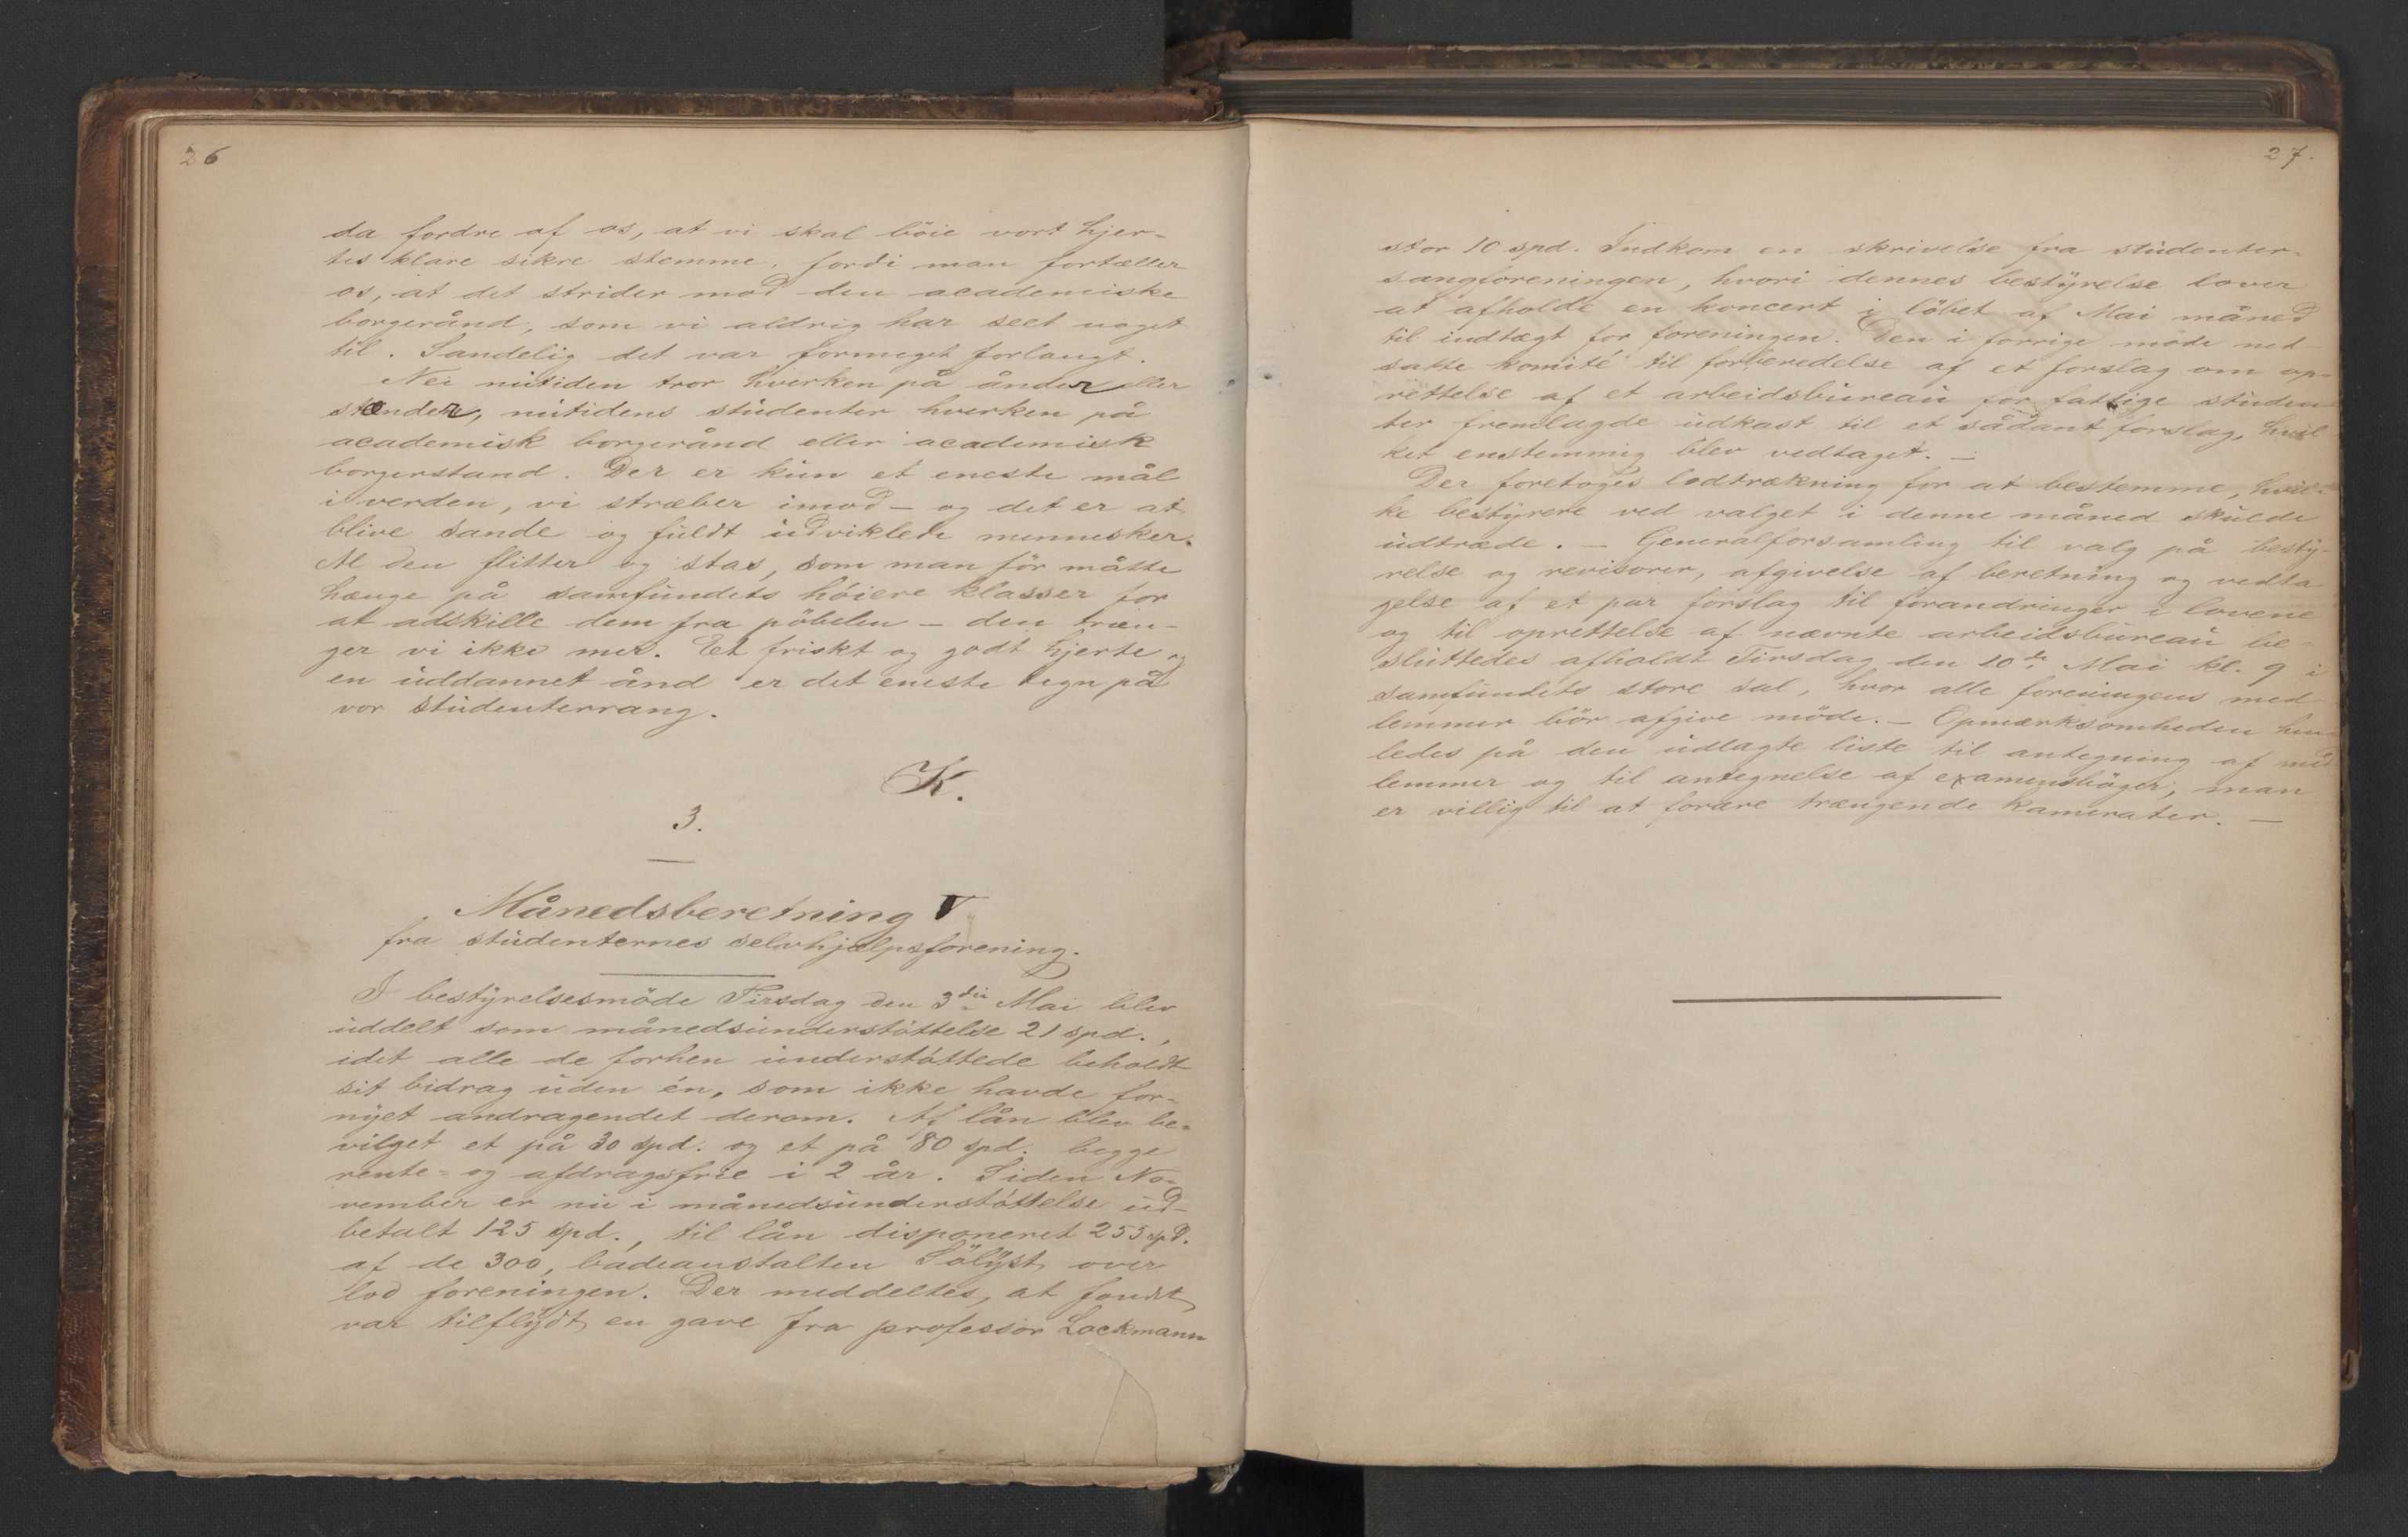 26
da fordre af os, at vi skal böie vort hjer-
tes klare sikre stemme, fordi man fortæller
os, at det strider mod den academiske
borgerånd, som vi aldrig har seet noget
til. Sandelig det var formeget forlangt.
Nei nutiden tror hverken på ånder eller
stænder, nutidens studenter hverken på
academisk borgerånd eller academisk
borgerstand. Der er kun et eneste mål
i verden, vi stræber imod – og det er at
blive sande og fuldt udviklede mennesker.
Al den flitter og stas, som man för måtte
hænge på samfundets höiere klasser for
at adskille dem fra pöbelen – den træn-
ger vi ikke mer. Et friskt og godt hjerte og
en uddannet ånd er det eneste tegn på
vor studenterrang.
K.
3.
Månedsberetning V
fra studenternes selvhjælpsforening.
I bestyrelsesmöde Tirsdag den 3die Mai blev
uddelt som månedsunderstöttelse 21 spd.,
idet alle de forhen understöttede beholdt
sit bidrag uden én, som ikke havde for-
nyet andragendet derom. Af lån blev be-
vilget et på 30 spd. og et på 80 spd. begge
rente- og afdragsfrie i 2 år. Siden No-
vember er nu i månedsunderstöttelse ud-
betalt 125 spd., til lån disponeret 255 spd.
af de 300, badeanstalten Sölyst over
lod foreningen. Der meddeltes, at fondet
var tilflydt en gave fra professor Lockmann
27.
stor 10 spd. Indkom en skrivelse fra studenter-
sangforeningen, hvori dennes bestyrelse lover
at afholde en koncert i löbet af Mai måned
til indtægt for foreningen. Den i forrige möde ned-
satte komité til forberedelse af et forslag om op-
rettelse af et arbeidsbureau for fattige studen-
ter fremlagde udkast til et sådant forslag, hvil
ket enstemmig blev vedtaget. –
Der foretoges lodtrækning for at bestemme, hvil-
ke bestyrere ved valget i denne måned skulde
udtræde. – Generalforsamling til valg på besty-
relse og revisorer, afgivelse af beretning og vedta
gelse af et par forslag til forandringer i lovene
og til oprettelse af nævnte arbeidsbureau be-
sluttedes afholdt Tirsdag den 10de Mai kl. 9 i
samfundets store sal, hvor alle foreningens med
lemmer bör afgive möde. – Opmærksomheden hen
ledes på den udlagte liste til antegning af med
lemmer og til antegnelse af examensböger, man
er villig til at forære trængende kamerater. –